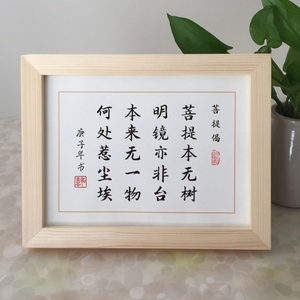 菩提偈
菩提本无树
明镜亦非台
本来无一物
何处惹尘埃
庚子年书